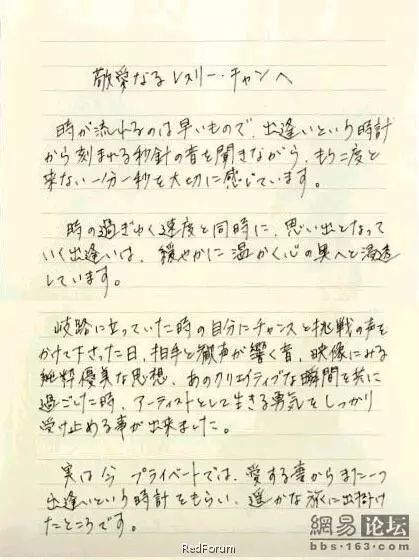 敬愛なるレスリー・チャンへ
時が流れるのは早いもので、出逢いという時計
から刻まれる秒針の音を聞きながら、もう二度と
来ない一分一秒を大切に感じています。
時の過ぎゆく速度と同時に、思い出となって
いく出逢いは、緩やかに温かく心の奥へと浸透
しています。
岐路に立っていた時の自分にチャンスと挑戦の声を
かけて下さった日、拍手と歓声が響く音、映像にみる
純粋優美な思想、あのクリエイティブな瞬間を共に
過ごした時、アーティストとして生きる勇気をしっかり
受け止める事が出来ました。
実は今 プライベートでは、愛する妻からまた一つ
出逢いという時計をもらい、遥かな旅に出掛け
たところです。
RedForum
網易论坛
bbs.163.com